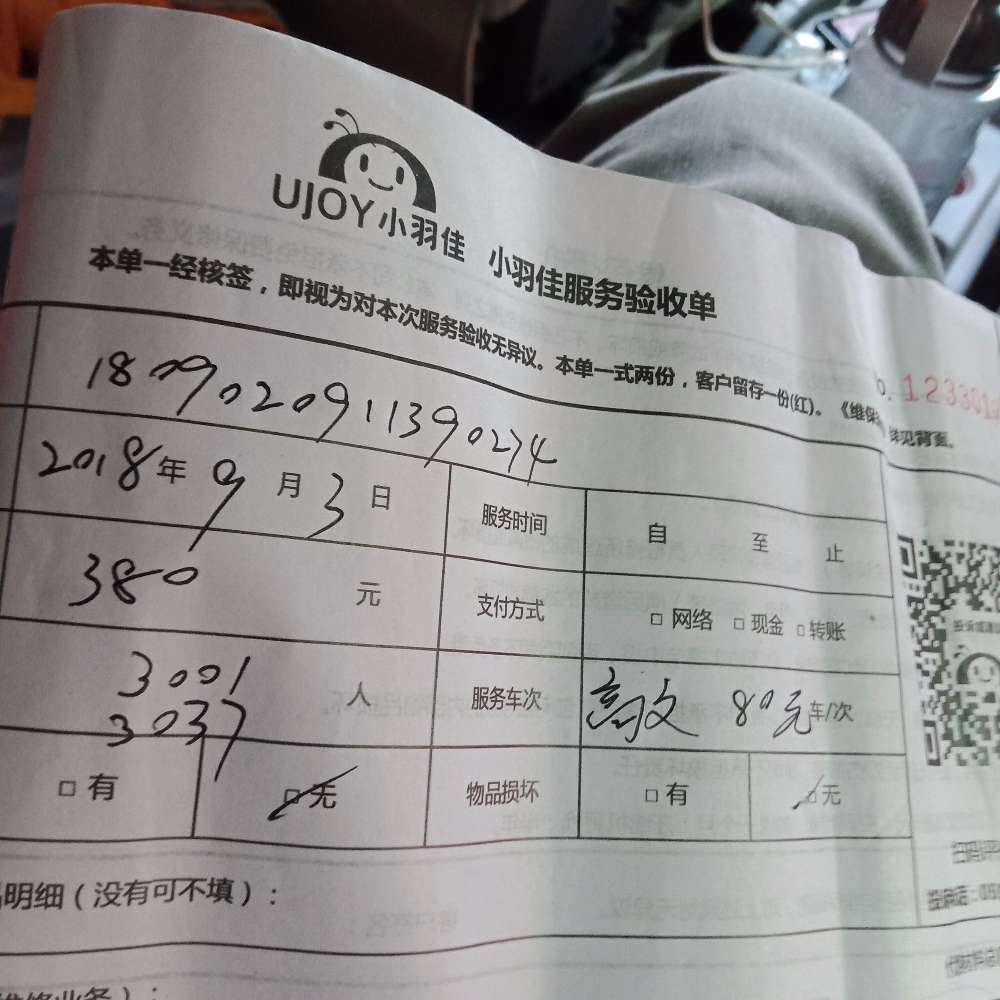 UJOY小羽佳 小羽佳服务验收单
本单一经核签，即视为对本次服务验收无异议。本单一式两份，客户留存一份(红)。《维保 详见背面。
123301
1809020911390274
2018年9月3日 服务时间 自 至 止
380 元 支付方式 □网络 □现金 □转账
3001 人 服务车次 80元 车/次
3037
□有 □无 物品损坏 □有 □无
明细（没有可不填）：
维修业务）：